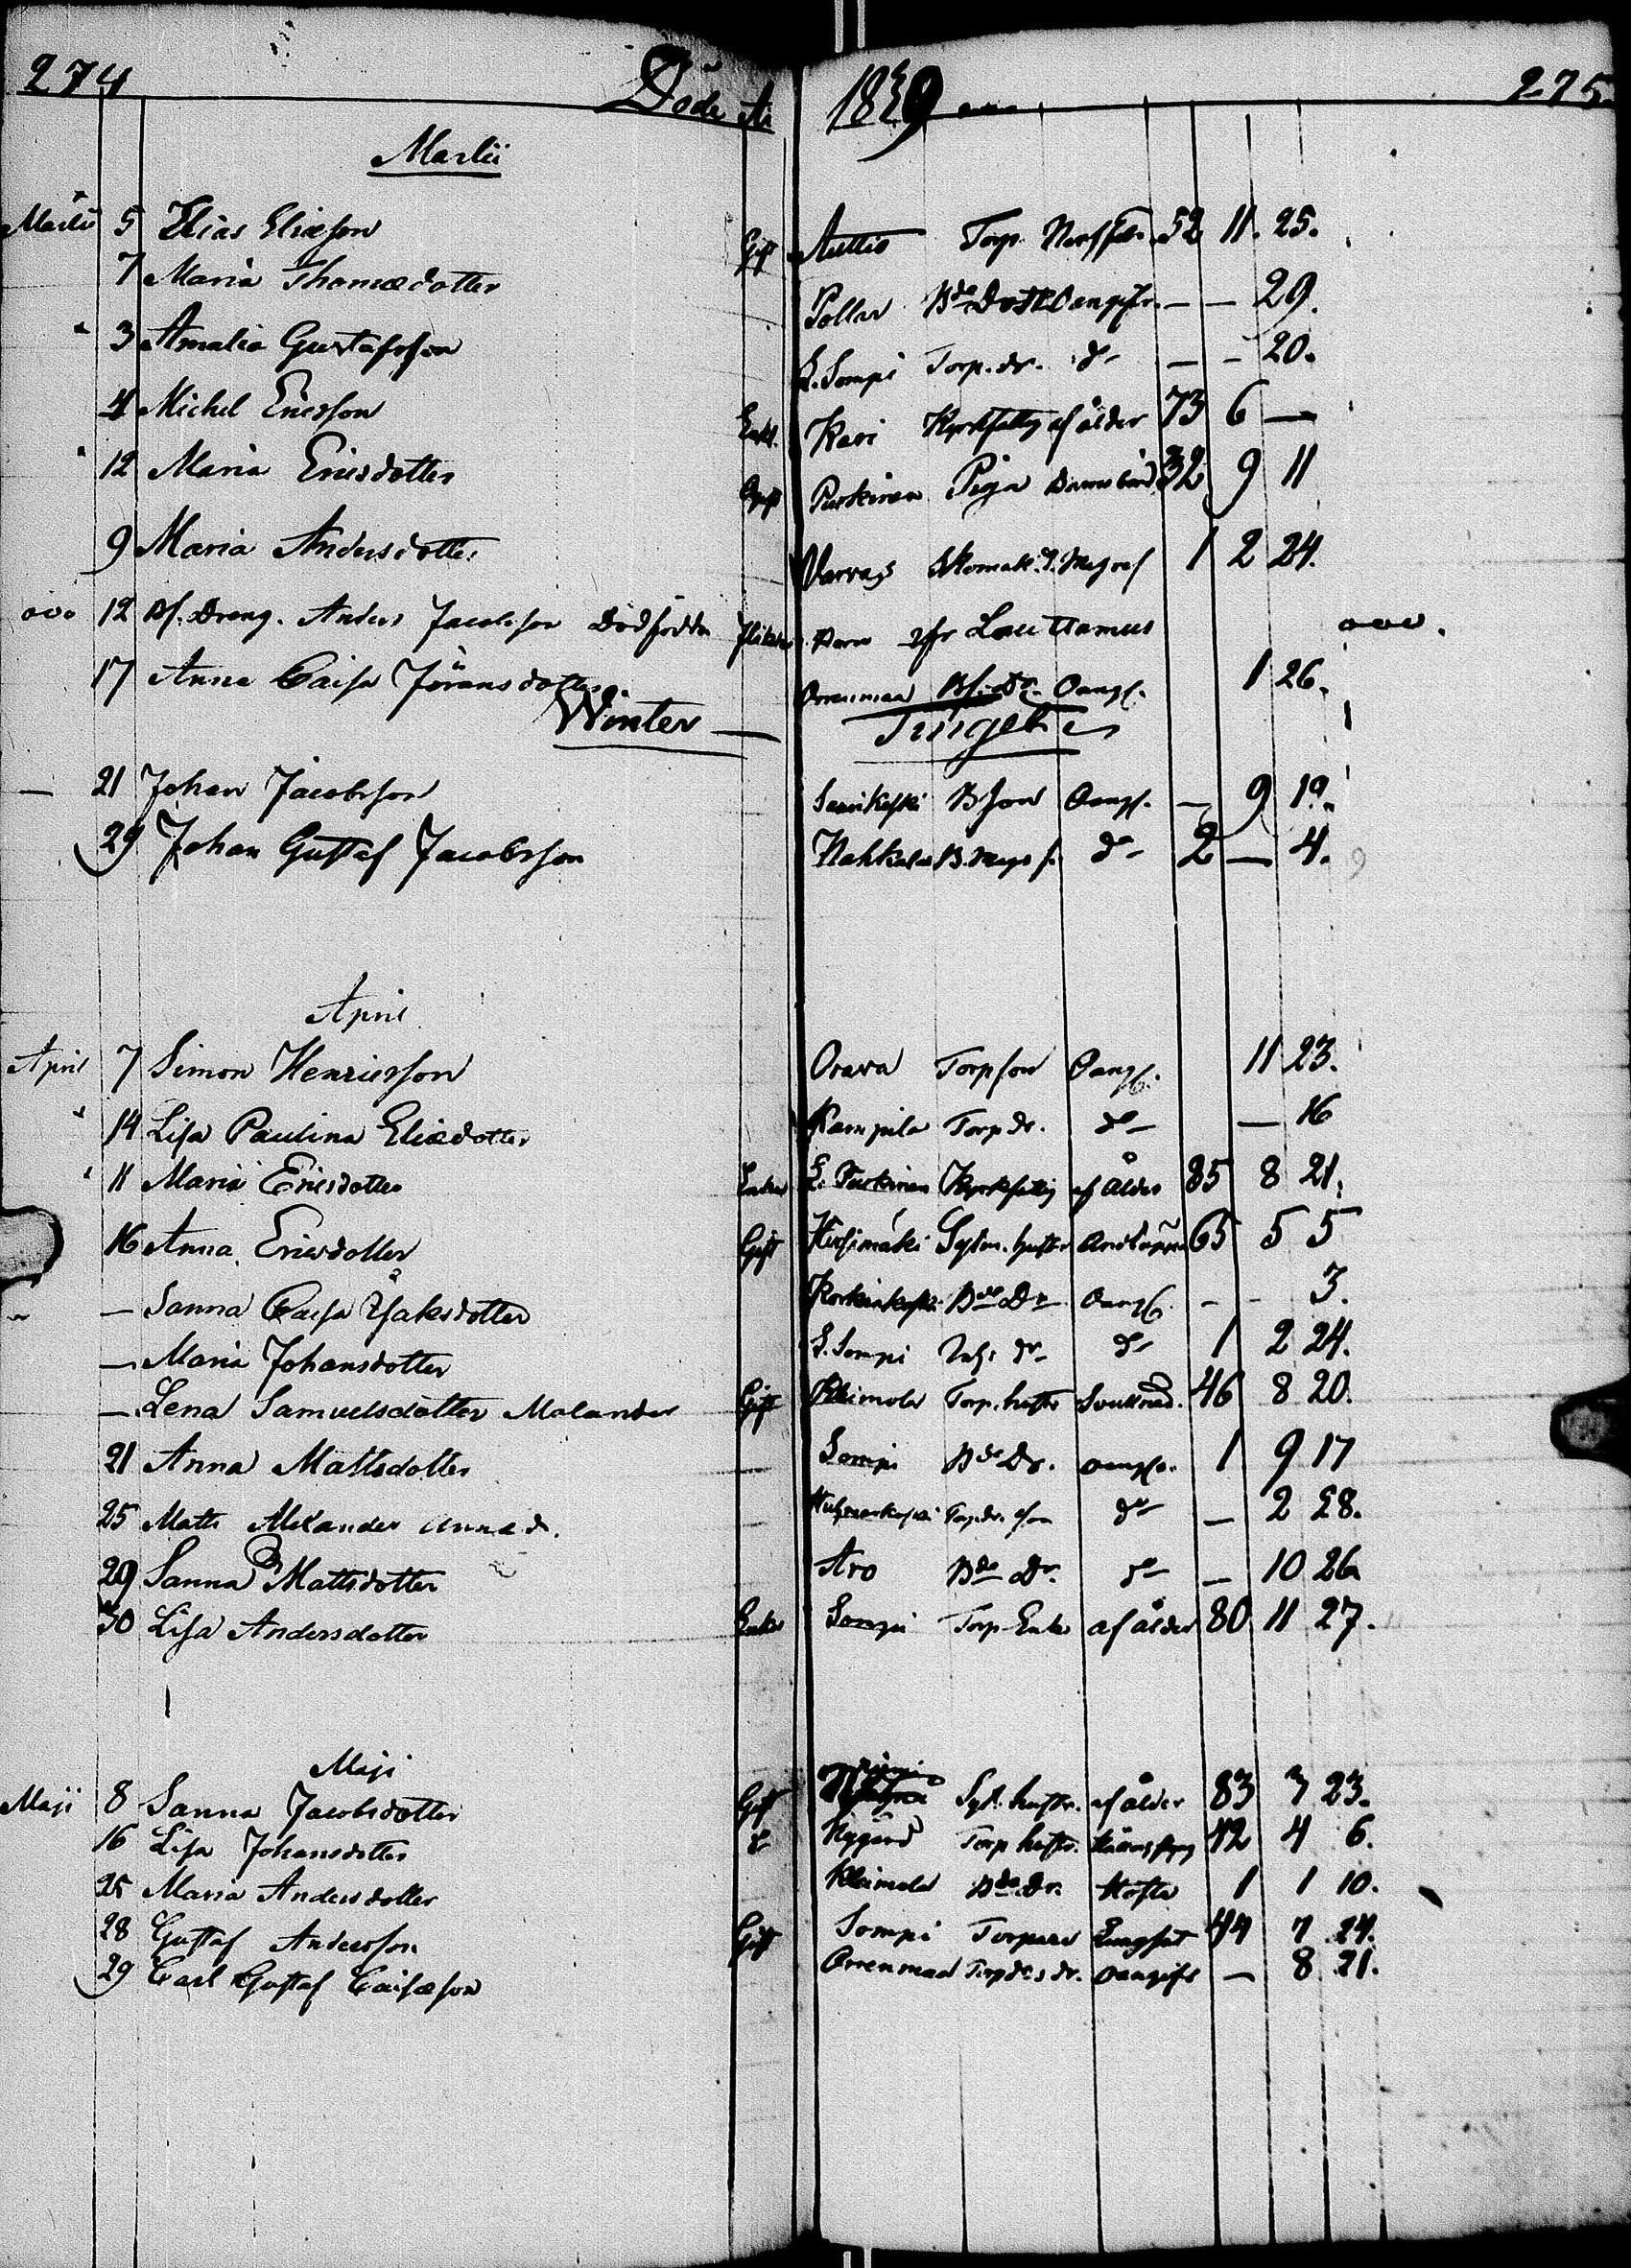 274 Döde År 1839 275
Martii
Martii 5 Elias Eliæson Gift Auttio Torp. 52 11. 25.
7 Maria Thomædotter Pollar Bde Dott Oangifv. — — 29.
3 Amalia Gustafsson L. Sompi Torp. dr. do — — 20.
4 Michel Ericsson Enkl. Kari Kyrkfattig af ålder 73 6 —
12 Maria Ericsdotter Ogift Purkinen Piga Barnsbörd 32 9 11
9 Maria Andersdotter Varvas 1 2 24.
12 Bf. Dreng. Anders Jacobsson Dödfödda flicka Barn ifr Lauttamus
17 Anna Caisa Jöransdotter Orrenmaa Bf. Dr. Oangf. 1 26.
Winter — Tinget
— 21 Johan Jacobsson Sarikoski B Son Oangf. — 9 19.
29 Johan Gustaf Jacobsson Nahkala B. Mags s. do 2 — 4.
April
April 7 Simon Henricsson Orava Torpson Oangf. 11 23.
14 Lisa Paulina Eliædotter Kampila Torp dr. do — 16
11 Maria Ericsdotter Enka L. Purkinen Kyrkfattig af ålder 85 8 21.
16 Anna Ericsdotter Gift Sytn. hustr 65 5 5
— Sanna Caisa Isaksdotter Koskinkoski Bde Dr Oangf. — — 3.
— Maria Johansdotter L. Sompi Inhs dr do 1 2 24.
— Lena Samuelsdotter Malander Gift Kleimola Torp. hustr 46 8 20.
21 Anna Mattsdotter Sompi Bde Dr. oangf. 1 9 17
25 Matts Alexander Annæ s. do — 2 28.
29 Sanna Mattsdotter Aro Bde Dr. do — 10 26
30 Lisa Andersdotter Enka Sompi Torp Enka af ålder 80 11 27.
Maji
Maji 8 Sanna Jacobsdotter Gift Syt. hustr. af ålder 83 3 23.
16 Lisa Johansdotter do Nygård Torp hustr. 42 4 6.
25 Maria Andersdotter Kleimola Bde Dr. Hosta 1 1 10.
28 Gustaf Andersson Gift Sompi Torpare Lungsot 44 7 24.
29 Carl Gustaf Caisæson Orrenmaa Torp drs dr. oangifv — 8 21.